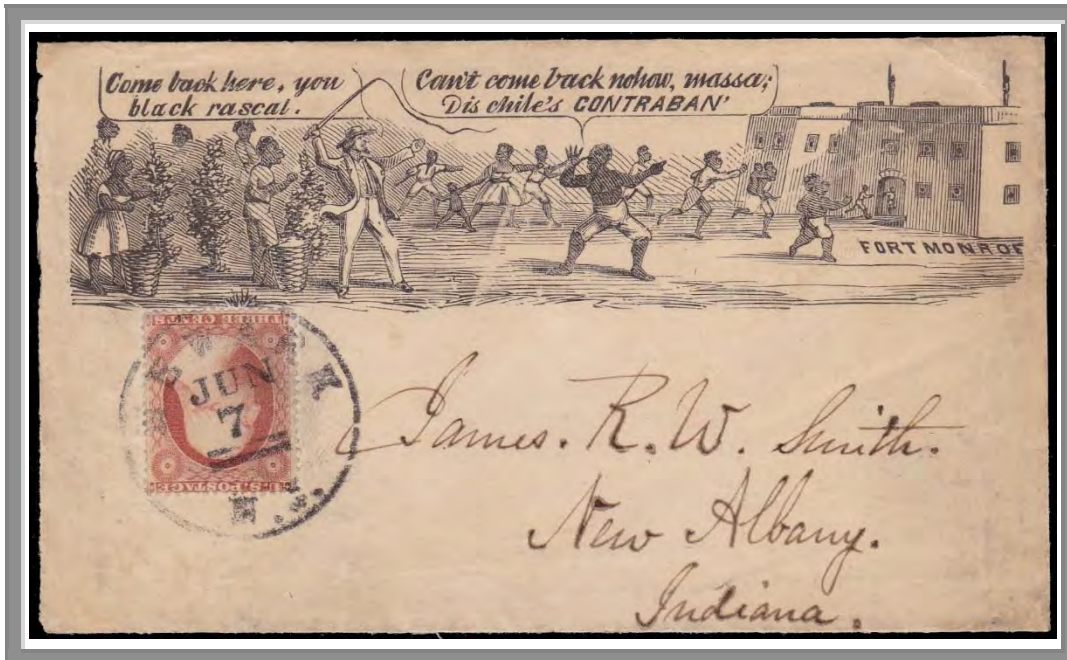 Come back here, you
black rascal.
Can't come back nohow, massa;
Dis chile's CONTRABAN'
FORT MONROE
THREE CENTS
U.S. POSTAGE
JUN
7
N.J.
James. R. W. Smith.
New Albany.
Indiana.